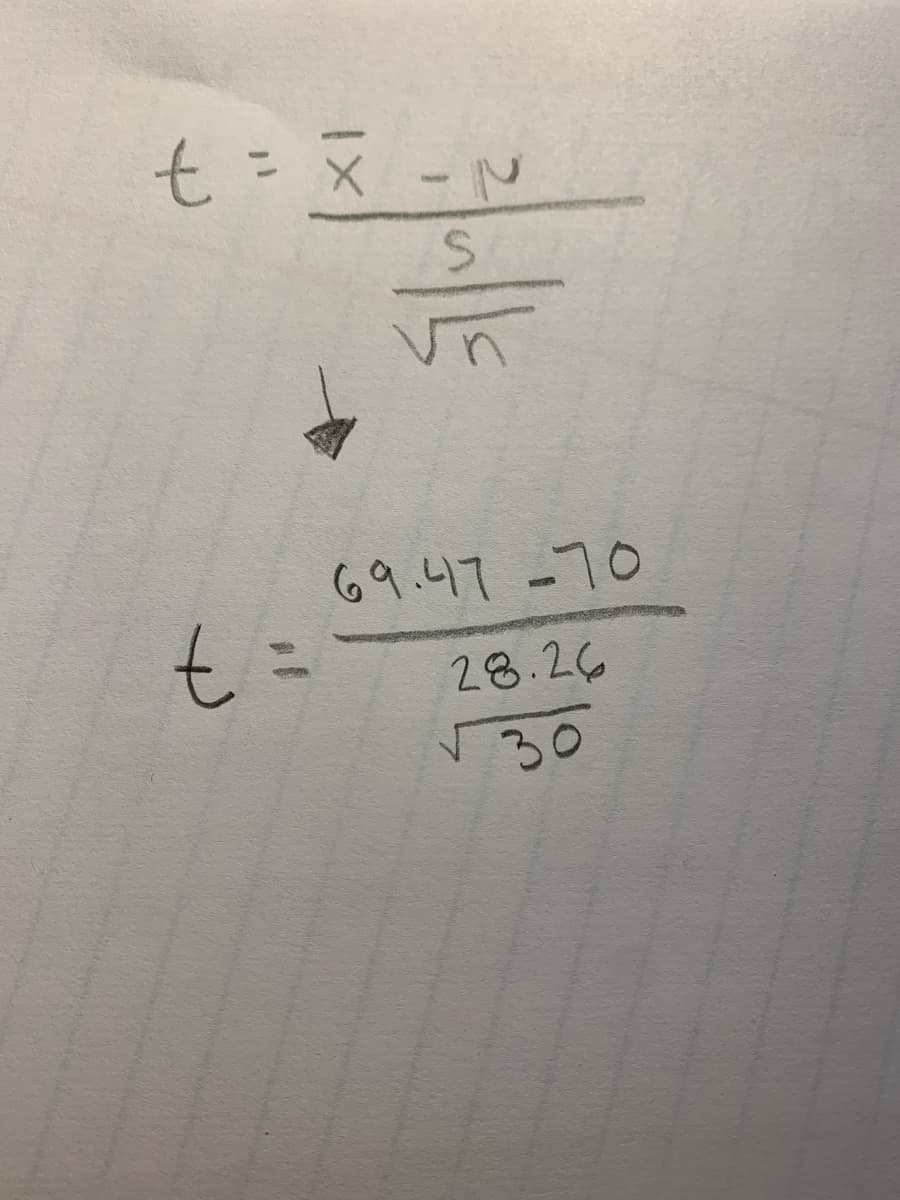 t = x̄ - μ
s
√n
69.47 - 70
t =
28.26
√30